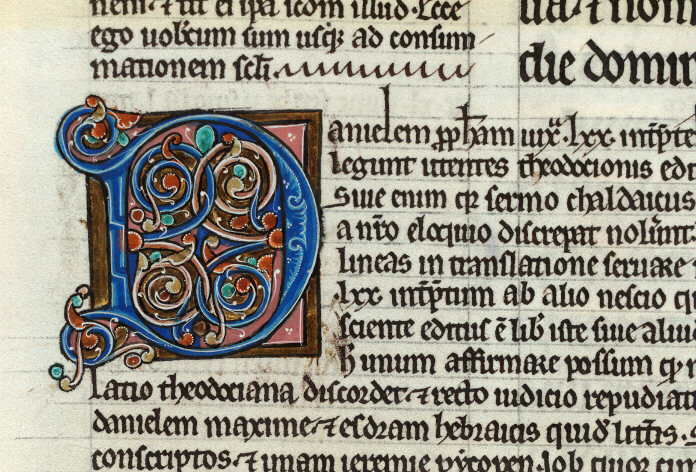 nem. ⁊ ut ei ip̄a icom illud. Ecce
ego uobcum sum usq; ad consum
mationem scl̄i.
lia. ⁊ nom
che domin
D
anielem p̱ph̄am iuxͣ .lxx. int̄p̄te
legunt utentes theodocionis edi
Siue enim qꝛ sermo chaldaicus
a nr̄o eloquio discrepat nolūnt
lineas in translatione seruare
.lxx. int̄p̄tum ab alio nescio q
sciente editus ē lib̄ iste siue aliu
h̄ unum affirmare possum qꝫ
latio theodociana discordet. ⁊ recto iudicio repudiat
danielem maxime. ⁊ esdram hebraicis quid̄ litt̄is. S
conscriptos. ⁊ unam ieremie